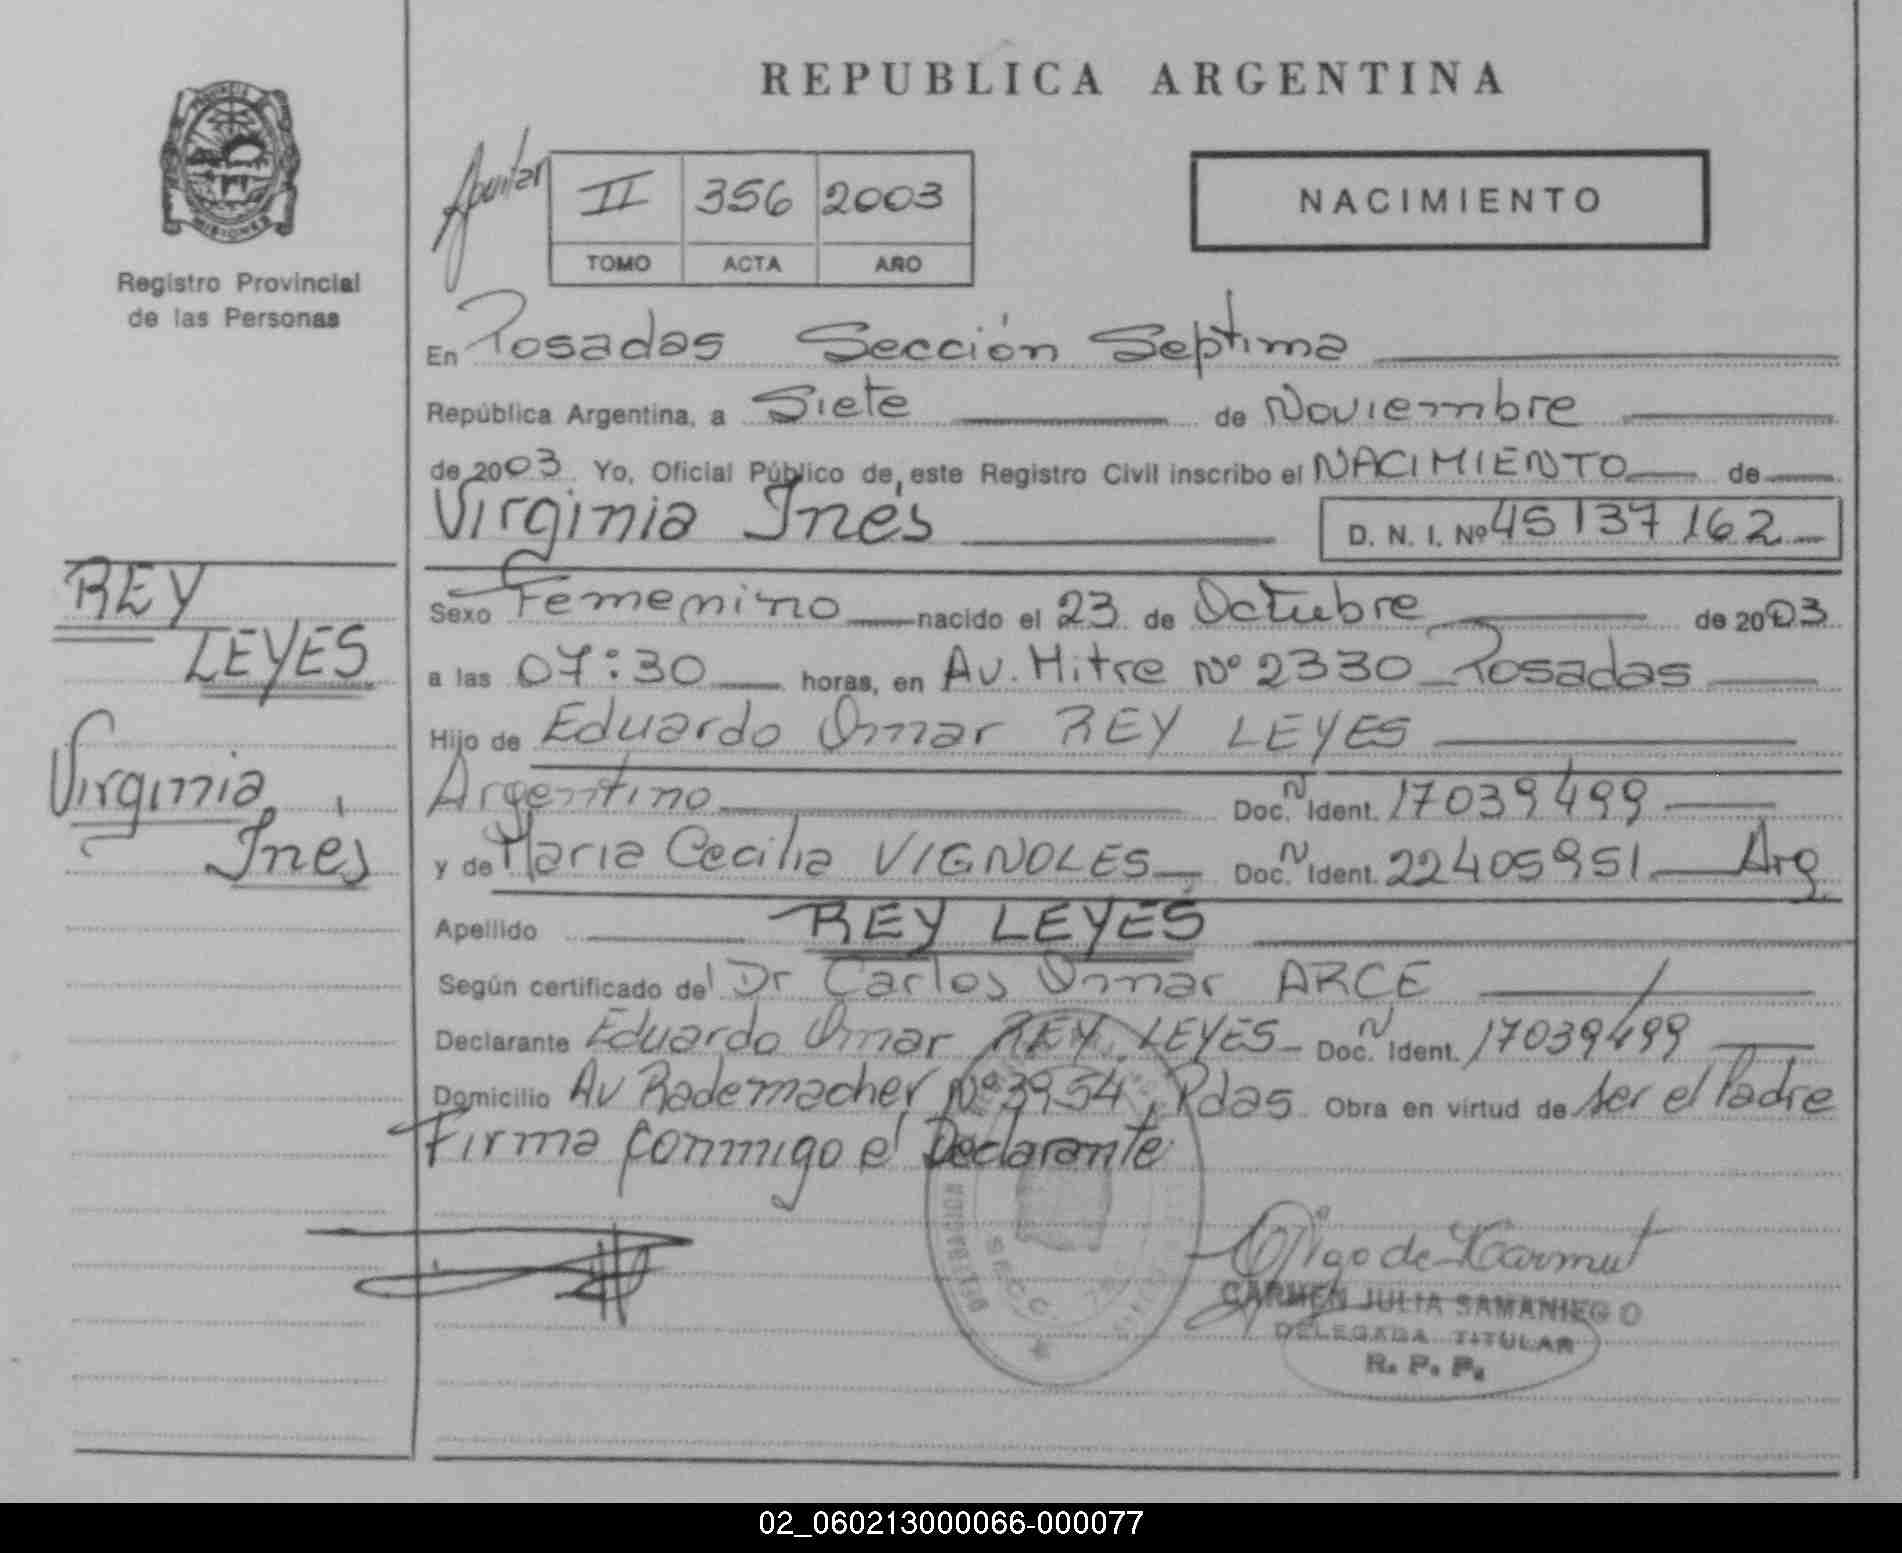 REPUBLICA ARGENTINA
PROVINCIA DE
MISIONES
Registro Provincial
de las Personas
II 356 2003
TOMO ACTA AÑO
NACIMIENTO
En Posadas Sección Septima
República Argentina, a Siete de Noviembre
de 2003 Yo, Oficial Público de este Registro Civil inscribo el NACIMIENTO de
Virginia Inés D. N. I. Nº 45 137 162
REY
LEYES
Virginia
Inés
Sexo Femenino nacido el 23 de Octubre de 2003
a las 07:30 horas, en Av. Mitre Nº 2330 Posadas
Hijo de Eduardo Omar REY LEYES
Argentino Doc. N Ident. 17039499
y de Maria Cecilia VIGNOLES Doc. N Ident. 22405951 Arg
Apellido REY LEYES
Según certificado del Dr Carlos Omar ARCE
Declarante Eduardo Omar REY LEYES Doc. N Ident. 17039499
Domicilio Av Rademacher Nº 3954, Pdas Obra en virtud de ser el Padre
Firma conmigo el Declarante
SECC.
CARMEN JULIA SAMANIEGO
DELEGADA TITULAR
R. P. P.
02_060213000066-000077